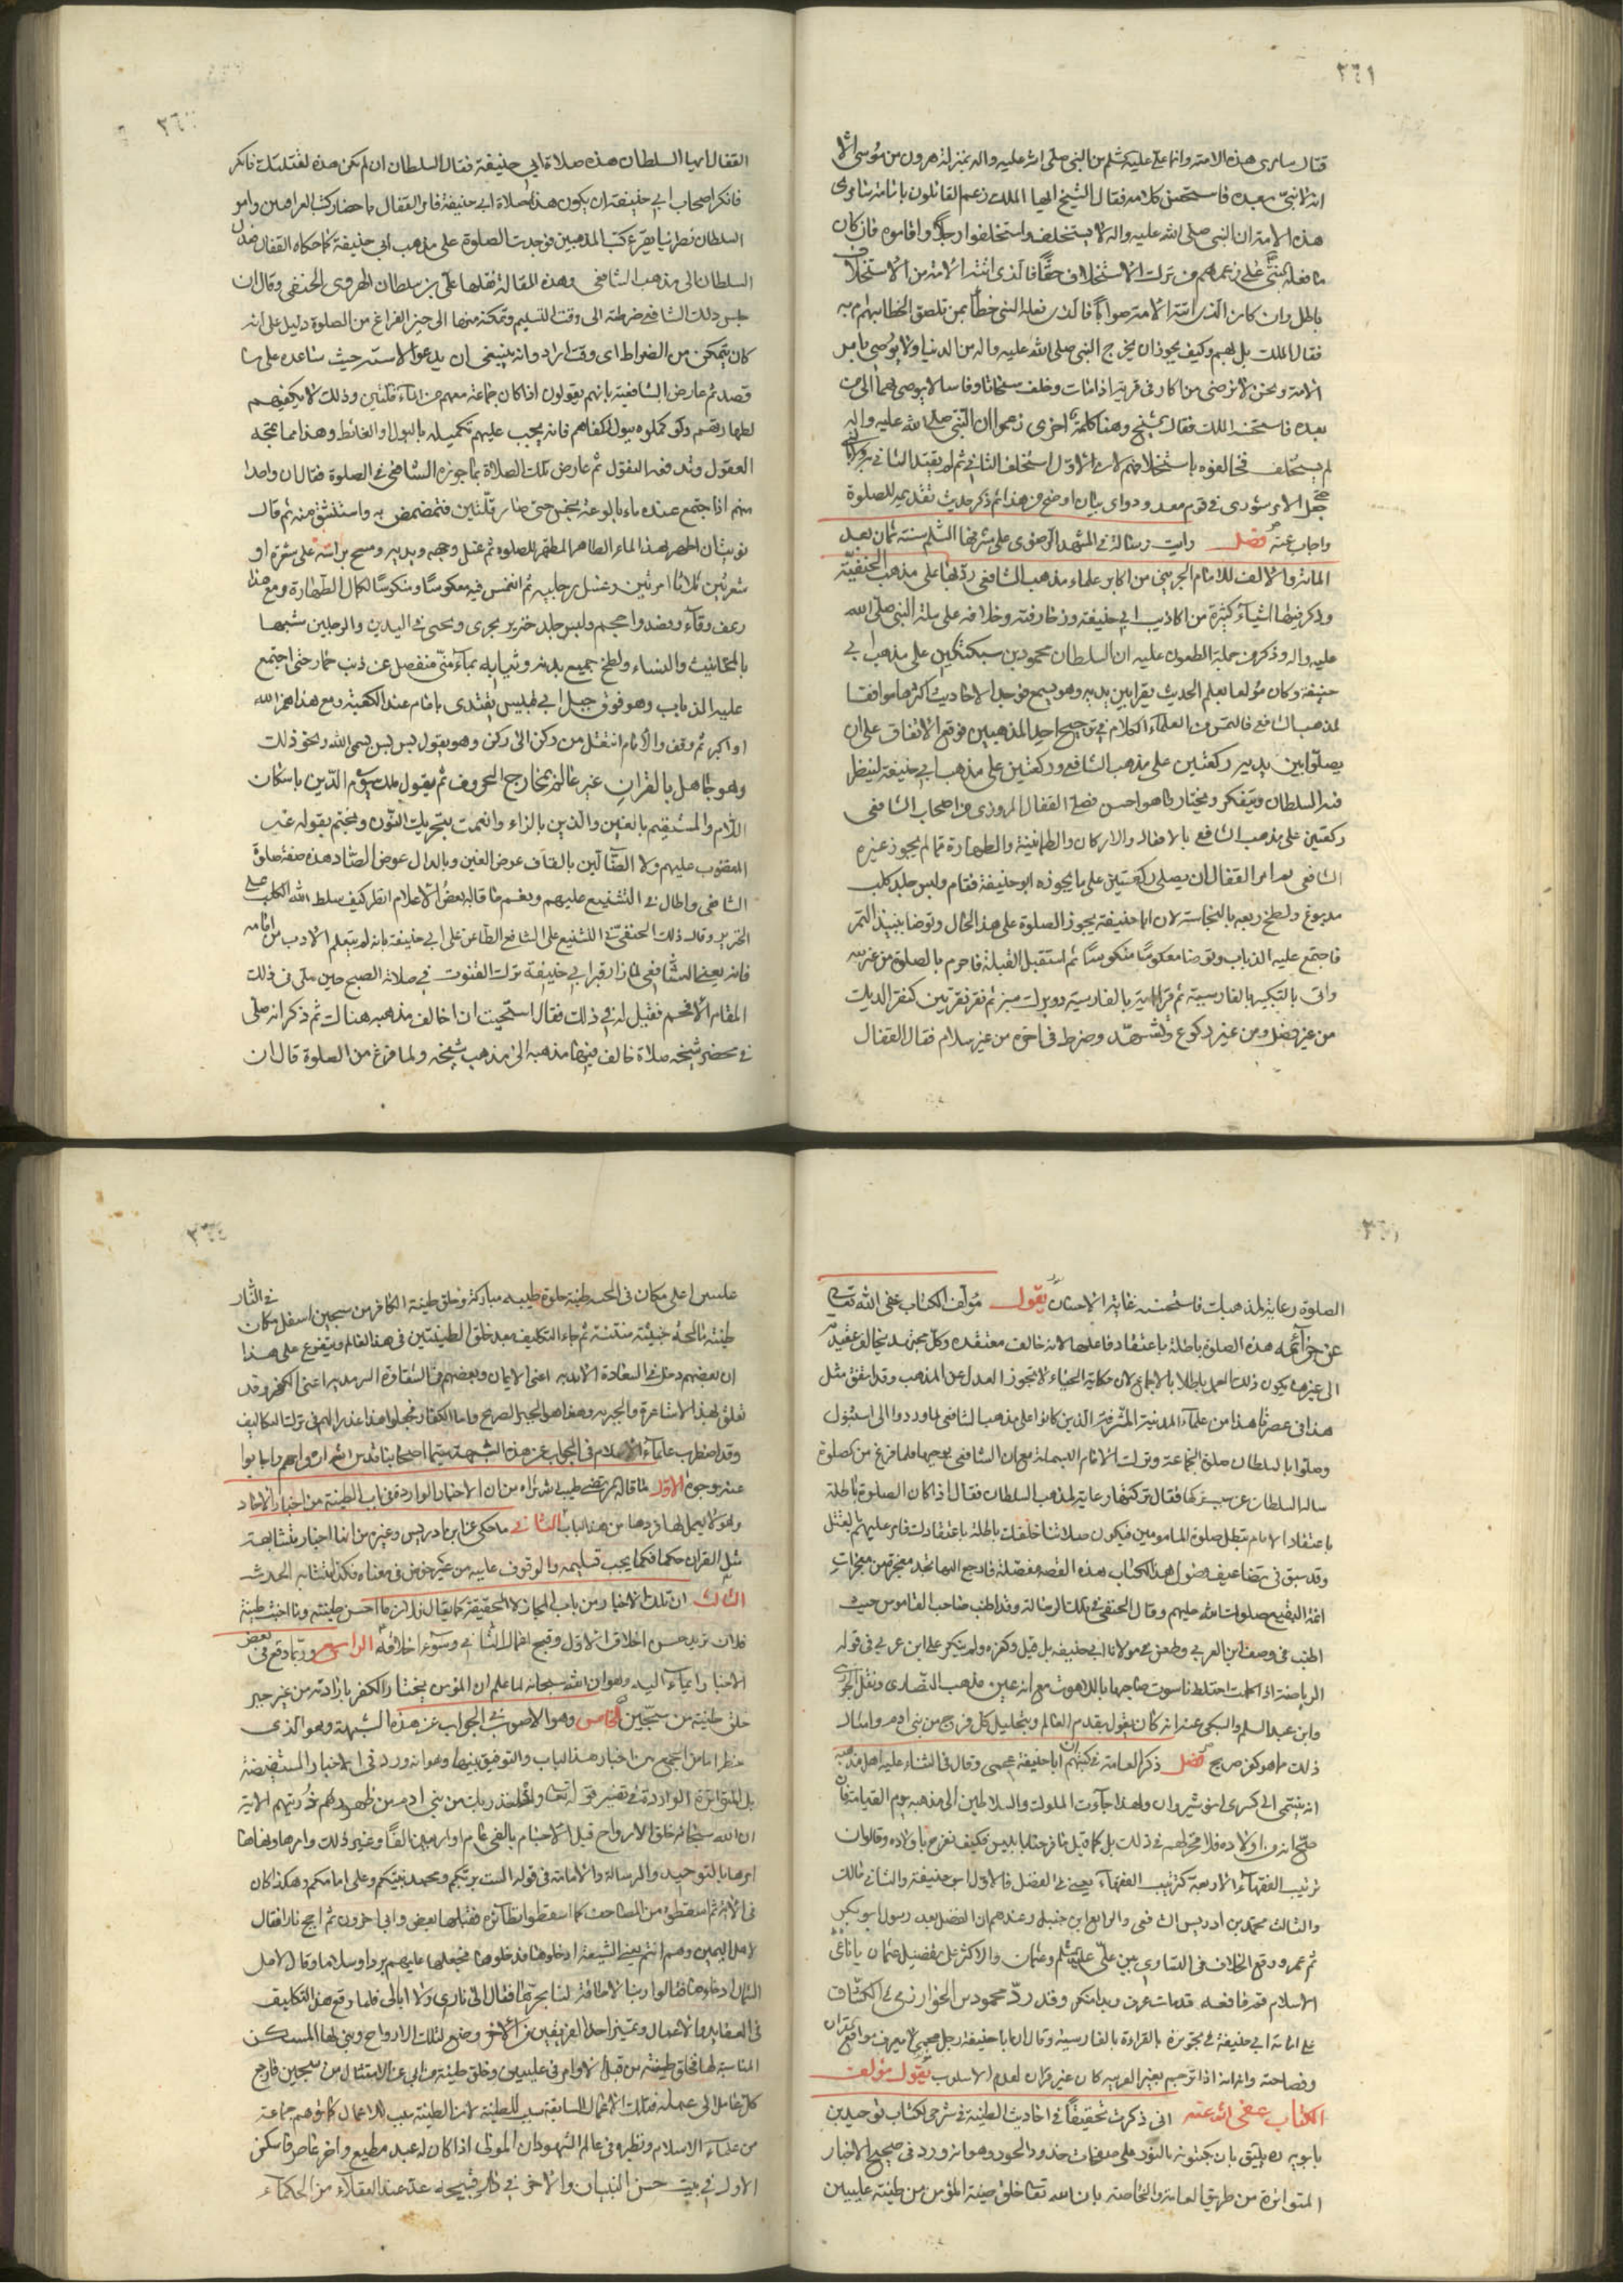 ٣٦١
قال سامری هذه الامة وانما علی علیه السلم من النبی صلی الله علیه واله بمنزلة هرون من موسی الا
انه لا نبی بعده فاستحسن کلامه فقال الشیخ ایها الملک زعم القائلون بامامة سامری
هذه الامة ان النبی صلی الله علیه واله لا یستخلف واستخلفوا رجلا واقاموه فان کان
ما فعله النبی علی زعمهم من ترک الاستخلاف حقا فالذی اتته الامة من الاستخلاف
باطل وان کان الذی اتته الامة صوابا فالذی فعله النبی خطأ بمن تلصق الخطا بهم ام به
فقال الملک بل بهم وکیف یجوز ان یخرج النبی صلی الله علیه واله من الدنیا ولا یوصی بامر
الامة ونحن لا نرضی من اکار فی قریة اذا مات وخلف مسحاتا وفاسا لا یوصی بهما الی من
بعده فاستحسنه الملک فقال الشیخ وهنا کلمة اخری زعموا ان النبی صلی الله علیه واله
لم یستخلف فخالفوه باستخلافهم لان الاول استخلف الثانی ثم لم یقتد الثانی به ولا بالنبی حتی
جعل الامر شوری فی قوم معدودین وای بیان اوضح من هذا ثم ذکر حدیث تقدیمه للصلوة
واجاب عنه فصل رایت رسالة فی المشهد الرضوی علی مشرفها السلم سنة ثمان بعد
المائة والالف للامام الجوینی من اکابر علماء مذهب الشافعی ردبها علی مذهب الحنفیة
وذکر فیها اشیاء کثیرة من اکاذیب ابی حنیفة وزخارفته وخلافه علی ملة النبی صلی الله
علیه واله وذکر من جملة الطعون علیه ان السلطان محمود بن سبکتکین علی مذهب ابی
حنیفة وکان مولعا بعلم الحدیث یقرا بین یدیه وهو یسمع فوجد الاحادیث اکثرها موافقا
لمذهب الشافعی فالتمس من العلماء الکلام فی ترجیح احد المذهبین فوقع الاتفاق علی ان
یصلوا بین یدیه رکعتین علی مذهب الشافعی ورکعتین علی مذهب ابی حنیفة لینظر
فیه السلطان ویتفکر ویختار ما هو احسن فصلی القفال المروزی من اصحاب الشافعی
رکعتین علی مذهب الشافعی بالافعال والارکان والطمانینة والطهارة مما لم یجوز غیره
الشافعی ثم امر القفال ان یصلی رکعتین علی ما یجوزه ابو حنیفة فقام ولبس جلد کلب
مدبوغ ولطخ ربعه بالنجاسة لان ابا حنیفة یجوز الصلوة علی هذا الحال وتوضا بنبیذ التمر
فاجتمع علیه الذباب وتوضا معکوسا منکوسا ثم استقبل القبلة فاحرم بالصلوة من غیر نیة
واتی بالتکبیر بالفارسیة ثم قرا الایة بالفارسیة دو برک سبز ثم نقر نقرتین کنقر الدیک
من غیر فصل ومن غیر رکوع وتشهد وضرط فی اخره من غیر سلام فقال القفال
القفال ایها السلطان هذه صلاة ابی حنیفة فقال السلطان ان لم تکن هذه لقتلتک فانکر
فانکر اصحاب ابی حنیفة ان یکون هذا صلاة ابی حنیفة فامر القفال باحضار کتب العراقیین وامر
السلطان نصرانیا یقرء کتب المذهبین فوجدت الصلوة علی مذهب ابی حنیفة کما حکاه القفال فعدل
السلطان الی مذهب الشافعی وهذه المقالة نقلها علی بن سلطان الهروی الحنفی وقال ان
حبس ذلک الشافعی ضرطته الی وقت التسلیم وتمکنه منها الی حین الفراغ من الصلوة دلیل علی انه
کان یتمکن من الضراط ای وقت اراد وانه ینبغی ان یدعو لاسته حیث ساعده علی ما
قصد ثم عارض الشافعیة بانهم یقولون اذا کان جماعة معهم من الماء قلتین وذلک لا یکفیهم
لطهارتهم ولو کملوه ببول لکفاهم فانه یجب علیهم تکمیله بالبول او الغائط وهذا مما تمجه
العقول وتدفعه النقول ثم عارض تلک الصلاة بما جوزه الشافعی فی الصلوة فقال ان واحدا
منهم اذا اجتمع عنده ماء بالوعة نجس حتی صار قلتین فتمضمض به واستنشق منه ثم قال
نویت ان اطهر بهذا الماء الطاهر المطهر للصلوة ثم غسل وجهه ویدیه ومسح براسه علی شعرة او
شعرتین ثلاثا او مرتین وغسل رجلیه ثم انغمس فیه معکوسا ومنکوسا لکمال الطهارة ومع هذا
رعف وقاء وفصد واحتجم ولبس جلد خنزیر بحری وتحنی فی الیدین والرجلین تشبها
بالمخانیث والنساء ولطخ جمیع بدنه وثیابه بماء منی منفصل عن ذنب حمار حتی اجتمع
علیه الذباب وهو فوق جبل ابی قبیس یقتدی بامام عند الکعبة ومع هذا همز الله
او اکبر ثم وقف والامام انتقل من رکن الی رکن وهو یقول بس بس بسم الله ونحو ذلک
وهو جاهل بالقران غیر عالم بمخارج الحروف ثم یقول ملک یوم الدین باسکان
اللام والمستقیم بالغین والذین بالزاء وانعمت بتحریک النون ویختم بقوله غیر
المغضوب علیهم ولا الضالین بالقاف عوض الغین وبالدال عوض الضاد هذه صفة صلوة
الشافعی واطال فی التشنیع علیهم ونعم ما قال بعض الاعلام انظر کیف سلط الله الکلب علی
الخنزیر وقال ذلک الحنفی فی التشنیع علی الشافعی الطاعن علی ابی حنیفة بانه لم یتعلم الادب من امامه
فانه یعنی الشافعی لما زار قبر ابی حنیفة ترک القنوت فی صلاة الصبح حین صلی فی ذلک
المقام الافخم فقیل له فی ذلک فقال استحییت ان اخالف مذهبه هناک ثم ذکر انه صلی
فی محضر شیخه صلاة خالف فیها مذهبه الی مذهب شیخه ولما فرغ من الصلوة قال ان
الصلوة رعایة لمذهبک فاستحسنه غایة الاحسان یقول مؤلف الکتاب عفی الله تعالی
عن جرائمه هذه الصلوة باطلة باعتقاد فاعلها لانه خالف معتقده وکل مجتهد یخالف عقیدته
الی غیرها یکون ذلک العمل باطلا بالاجماع لان حکایة الحیاء لا تجوز العدل عن المذهب وقد اتفق مثل
هذا فی عصرنا هذا من علماء المدینة المشرفة الذین کانوا علی مذهب الشافعی لما وردوا الی استنبول
وصلوا بالسلطان صلوة الجماعة وترک الامام البسملة مع ان الشافعی یوجبها فلما فرغ من الصلوة
ساله السلطان عن سبب ترکها فقال ترکتها رعایة لمذهب السلطان فقال اذا کان الصلوة باطلة
باعتقاد الامام تبطل صلوة المامومین فیکون صلاتنا خلفک باطلة باعتقادک فامر علیهم بالقتل
وقد سبق فی تضاعیف فصول هذا الکتاب هذه القصة مفصلة فارجع الیها تجد معجزة من معجزات
ائمة البقیع صلوات الله علیهم وقال الحنفی فی تلک الرسالة وقد اطنب صاحب القاموس حیث
اطنب فی وصف ابن العربی وطعن فی مولانا ابی حنیفة بل قیل وکفره ولم ینکر علی ابن عربی فی قوله
الریاضة اذا کملت اختلط ناسوت صاحبها باللاهوت مع انه عین مذهب النصاری ونقل الجزری
وابن عبد السلم والسبکی عنه انه کان یقول بقدم العالم وبتحلیل کل فرج من بنی ادم وامثال
ذلک مما هو کفر صریح فصل ذکر العامة فی کتبهم ان ابا حنیفة عجمی وقال فی الثناء علیه اهل مذهبه
انه ینتمی الی کسری انوشیروان ولهذا جاءت الملوک والسلاطین الی مذهبه یوم القیامة فان
صح انه من اولاده فلا فخر لهم فی ذلک بل کما قیل
ترتیب الفقهاء الاربعة کترتیب الفقهاء یعنی فی الفضل فالاول ابو حنیفة والثانی مالک
والثالث محمد بن ادریس الشافعی والرابع ابن حنبل وعندهم ان الفضل بعد رسول ابو بکر
ثم عمر ووقع الخلاف فی التساوی بین علی علیه السلم وعثمان والاکثر علی تفضیل عثمان
وقد ردّ محمود بن الخوارزمی فی الکشاف
علی امامة ابی حنیفة فی تجویزه بالقراءة بالفارسیة وقال ان ابا حنیفة رجل عجمی لا یعرف مواقع القران
وفصاحته وانه اذا ترجم بغیر العربیة کان غیر قران لعدم الاسلوب یقول مؤلف
الکتاب عفی الله عنه انی ذکرت تحقیقا فی احادیث الطینة فی شرحی لکتاب توحید بن
بابویه ره یلیق بان یکتبونه بالنور علی صفحات خدود الحور وهو انه ورد فی صحیح الاخبار
المتواترة من طریق العامة والخاصة بان الله تعالی خلق طینة المؤمن من طینة علیین
علیین اعلی مکان فی الجنة طینة حلوة طیبة مبارکة وخلق طینة الکافر من سجین اسفل مکان فی النار
طینة مالحة خبیثة منتنة ثم جاء التکلیف بعد خلق الطینتین فی هذا العالم ویتفرع علی هذا
ان بعضهم دخل فی السعادة الابدیة اعنی الایمان وبعضهم فی الشقاوة السرمدیة اعنی الکفر وقد
تعلق بهذا الاشاعرة والجبریة وهذا هو الجبر الصریح واما الکفار فجعلوا هذا عذرا لهم فی ترک التکالیف
وقد اضطرب علماء الاسلام فی الجواب عن هذه الشبهة سیما اصحابنا قدس الله ارواحهم واجابوا
عنه بوجوه الاول ما قاله المرتضی طیب الله ثراه من ان الاخبار الواردة فی باب الطینة من اخبار الاحاد
وهو لا یعمل بها فردها من هذا الباب الثانی ما حکی عن ابن ادریس وغیره من انها اخبار متشابهة
مثل القران حکمها فکما یجب تسلیمه والوقوف علیه من غیر خوض فی معناه فکذا متشابه الحدیث
الثالث ان تلک الاخبار من باب المجاز لا الحقیقة کما یقال فلان ما احسن طینته وما اخبث طینة
فلان ترید حسن اخلاق الاول وقبح افعال الثانی وسوء اخلاقه الرابع وربما وقع فی بعض
الاخبار ایماء الیه وهو ان الله سبحانه لما علم ان المؤمن یختار والکفر بارادته من غیر جبر
خلق طینة من سجین الخامس وهو الاصوب فی الجواب عن هذه الشبهة وهو الذی
خطر لنا من الجمع بین اخبار هذا الباب والتوفیق بینها وهو انه ورد فی الاخبار المستفیضة
بل المتواترة الواردة فی تفسیر قوله تعالی واذ اخذ ربک من بنی ادم من ظهورهم ذریتهم الایة
ان الله سبحانه خلق الارواح قبل الاجسام بالفی عام او اربعین الفا وغیر ذلک وامرها ونهاها
امرها بالتوحید والرسالة والامامة فی قوله الست بربکم ومحمد نبیکم وعلی امامکم وهکذا کان
فی الایة ثم اسقطوه من المصاحف کما اسقطوا نظائره فقبلها بعض وابی اخرون ثم اجج نارا فقال
لاهل الیمین وهم انتم یعنی الشیعة ادخلوها فدخلوها فجعلها علیهم بردا وسلاما وقال لاهل
الشمال ادخلوها فقالوا ربنا لا طاقة لنا بحرّها فقال الی ناری ولا ابالی فلما وقع هذا التکلیف
فی العقاید والاعمال وتمیز احد الفریقین من الاخر وضع لتلک الارواح وبنی لها المساکن
المناسبة لها فخلق طینة من قبل الاوامر فی علیین وخلق طینة من ابی عن الامتثال من سجین فارجع
کل عامل الی عمله فتلک الاعمال السابقة سبب للطینة لا ان الطینة سبب للاعمال کما توهم جماعة
من علماء الاسلام ونظیره فی عالم الشهود ان المولی اذا کان له عبد مطیع واخر عاص فاسکن
الاول فی بیت حسن البنیان والاخر فی دار قبیحة عدّ عند العقلاء من الحکماء